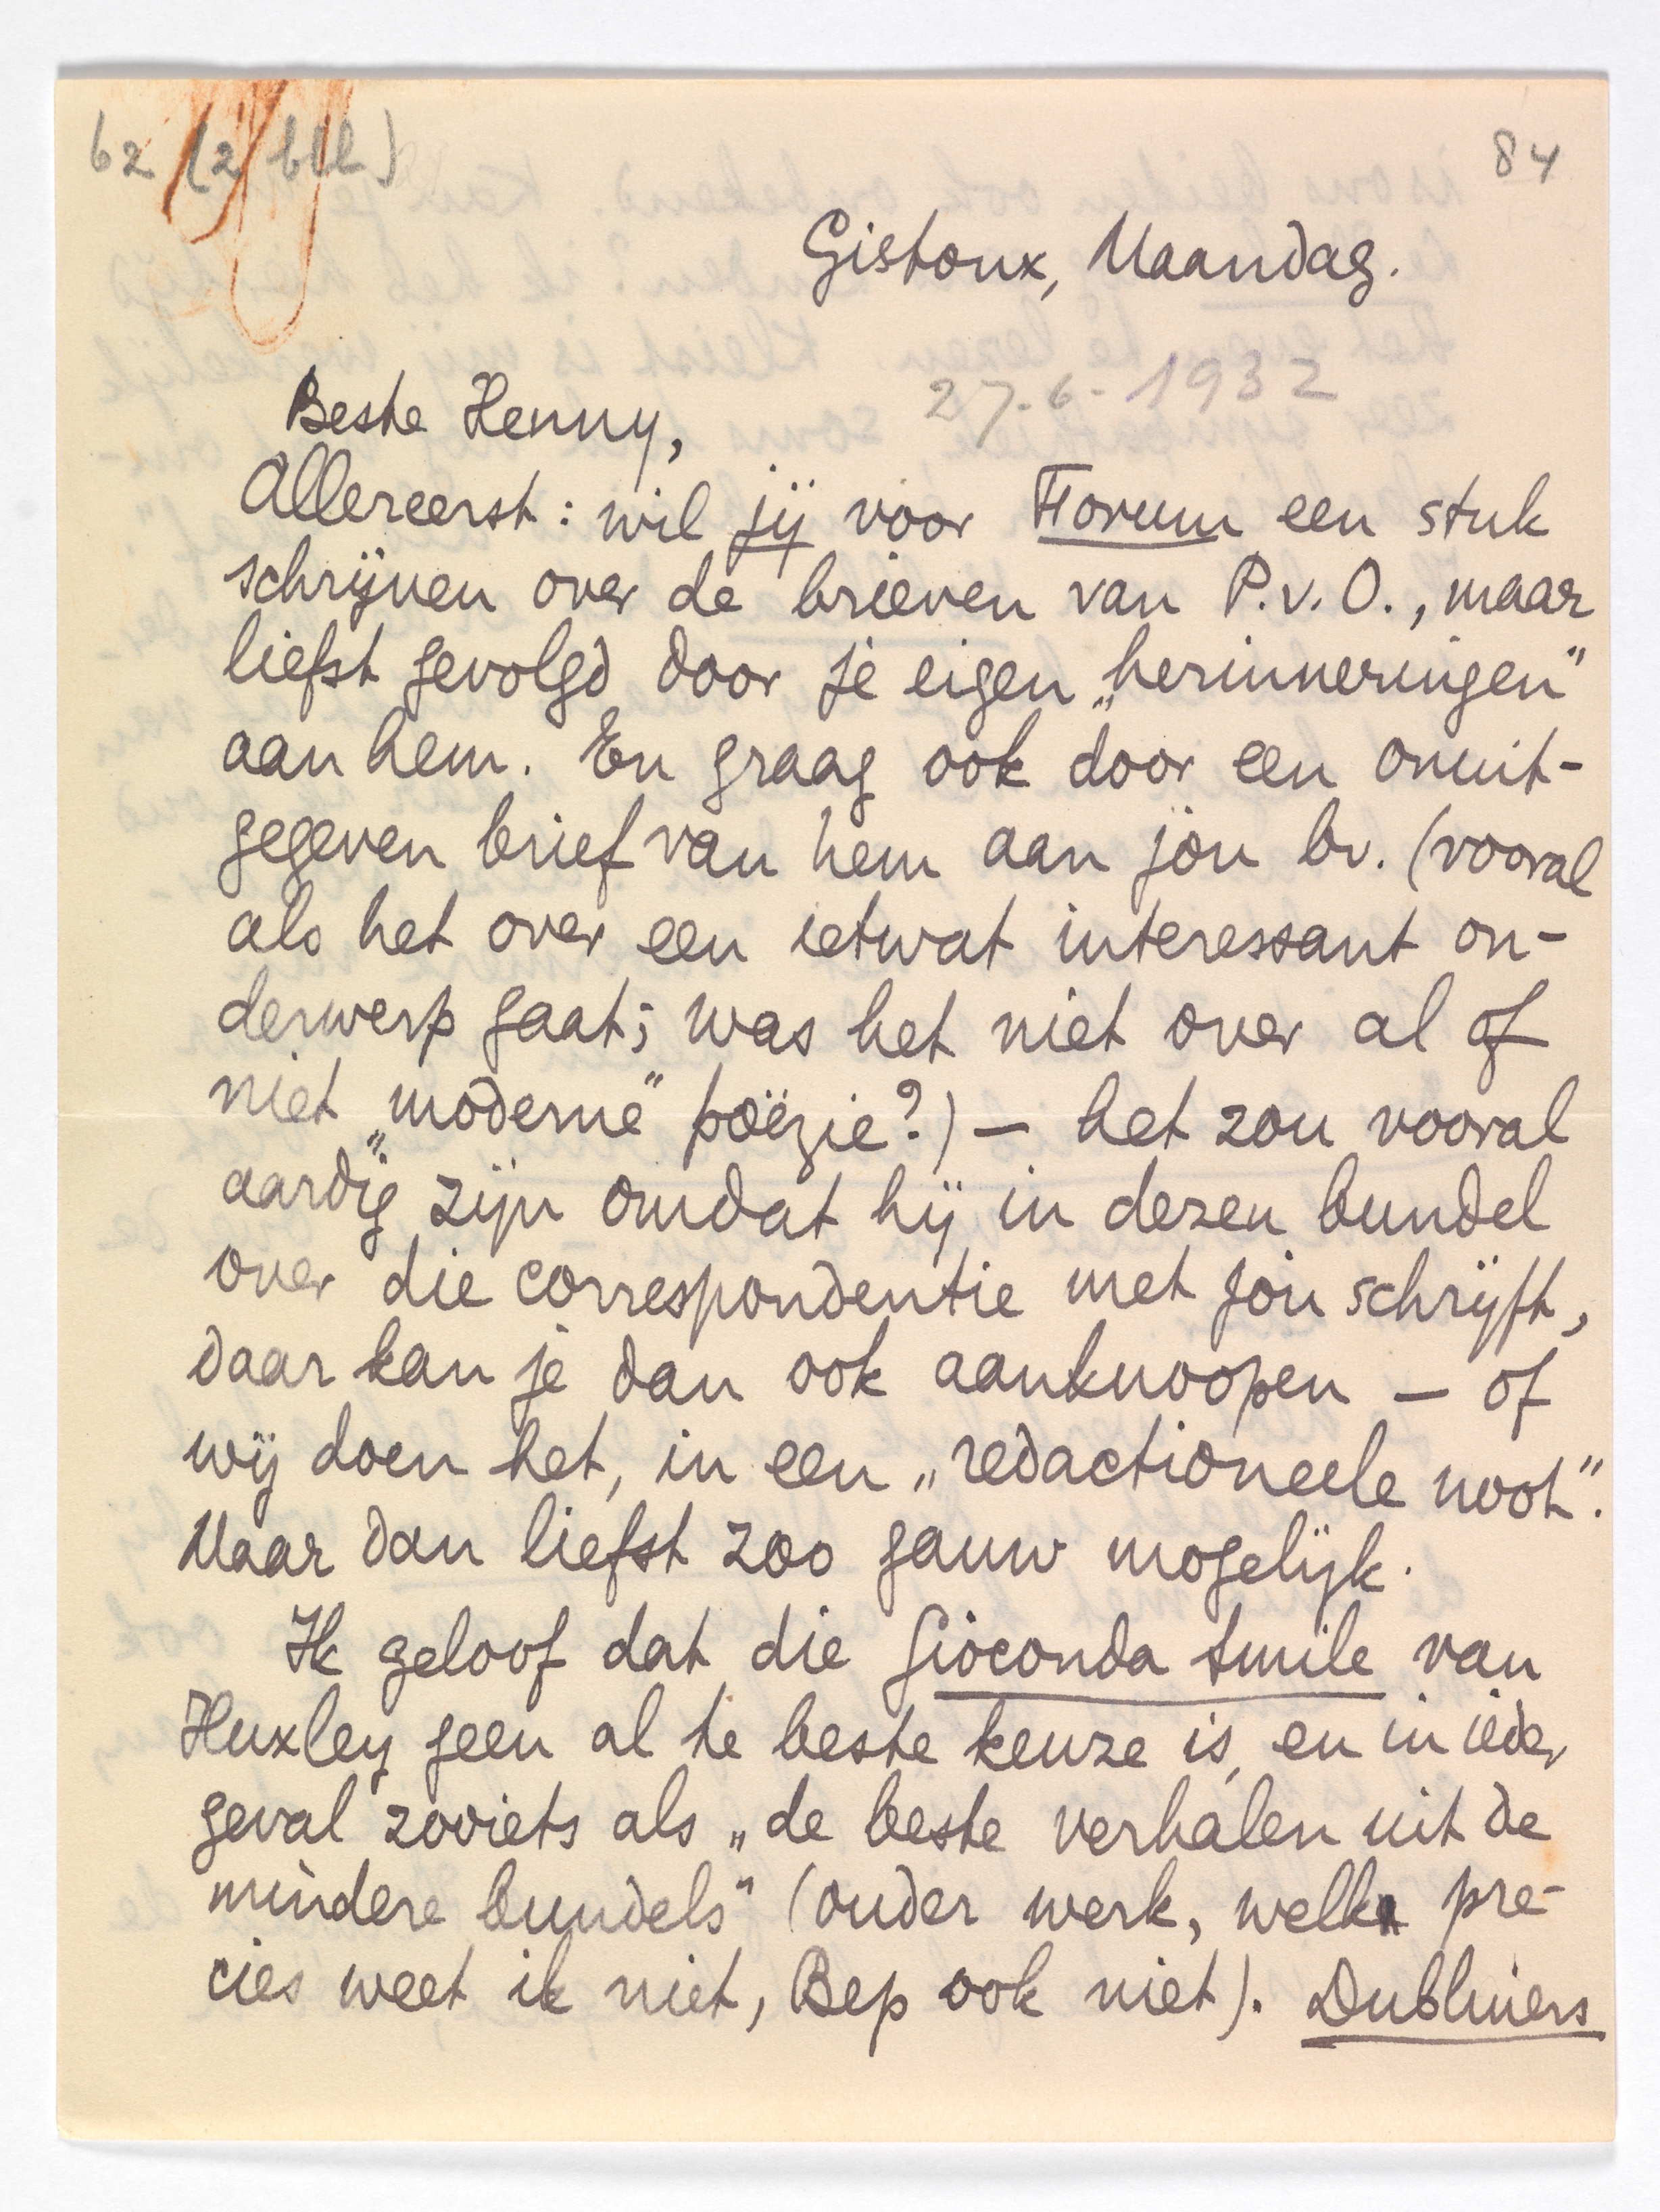 62 (2 bll)
84
Gistoux, Maandag.
27.6.1932
Beste Henny,
Allereerst: wil jij voor Forum een stuk
schrijven over de brieven van P.v.O., maar
liefst gevolgd door je eigen „herinneringen”
aan hem. En graag ook door een onuit-
gegeven brief van hem aan jou bv. (vooral
als het over een ietwat interessant on-
derwerp gaat; was het niet over al of
niet „moderne” poëzie?) — het zou vooral
aardig zijn omdat hij in dezen bundel
over die correspondentie met jou schrijft,
daar kan je dan ook aanknoopen — of
wij doen het, in een „redactioneele noot”.
Maar dan liefst zoo gauw mogelijk.
Ik geloof dat die Gioconda Smile van
Huxley geen al te beste keuze is, en in ieder
geval zooiets als „de beste verhalen uit de
mindere bundels” (ouder werk, welk pre-
cies weet ik niet, Bep ook niet). Dubliners